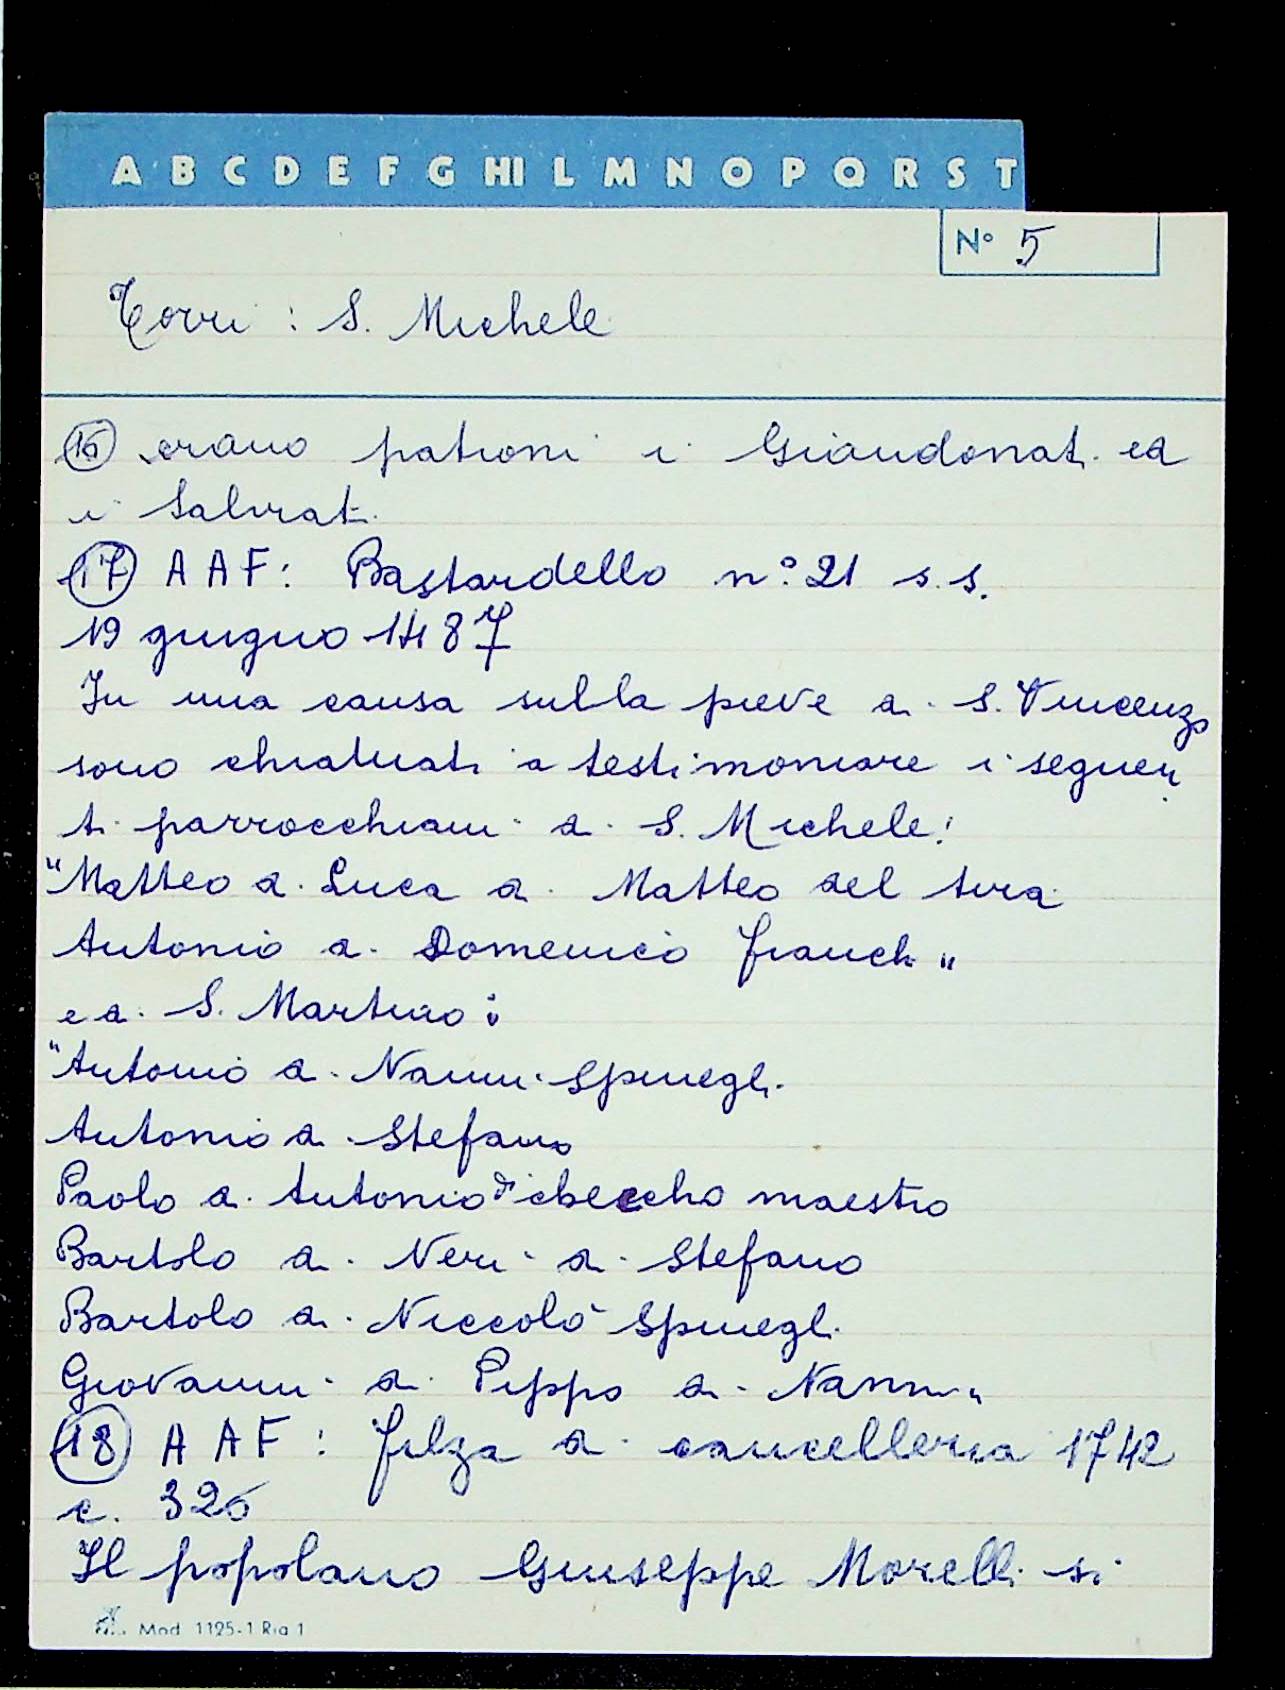 A B C D E F G HI L M N O P Q R S T
N° 5
Torri : S. Michele
16 erano patroni i Giandonati ed
i Salviati.
17 A A F : Bastardello n° 21 s.s.
19 giugno 1487
In una causa sulla pieve di S. Vincenzo
sono chiamati a testimoniare i seguen
ti parrocchiani di S. Michele:
"Matteo di Luca di Matteo del tira
Antonio di Domenico franchi"
e di S. Martino:
"Antonio di Nanni Spinegli
Antonio di Stefano
Paolo di Antonio di checcho maestro
Bartolo di Neri di Stefano
Bartolo di Niccolò Spinegli
Giovanni di Pippo di Nanni"
18 A A F : filza di cancelleria 1742
c. 326
Il popolano Giuseppe Morelli si
Mod. 1125-1 Rig 1